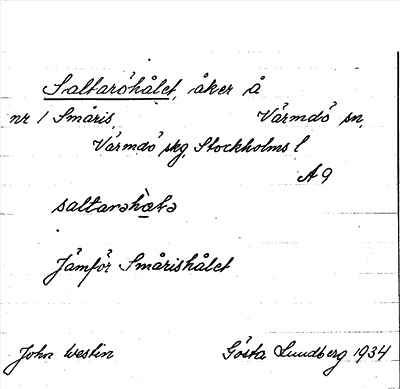 Saltaröhålet, åker å
nr 1 Småris, Värmdö sn,
Värmdö skg, Stockholms l
A 9
Jämför Smårishålet
John Westin Gösta Lundberg 1934